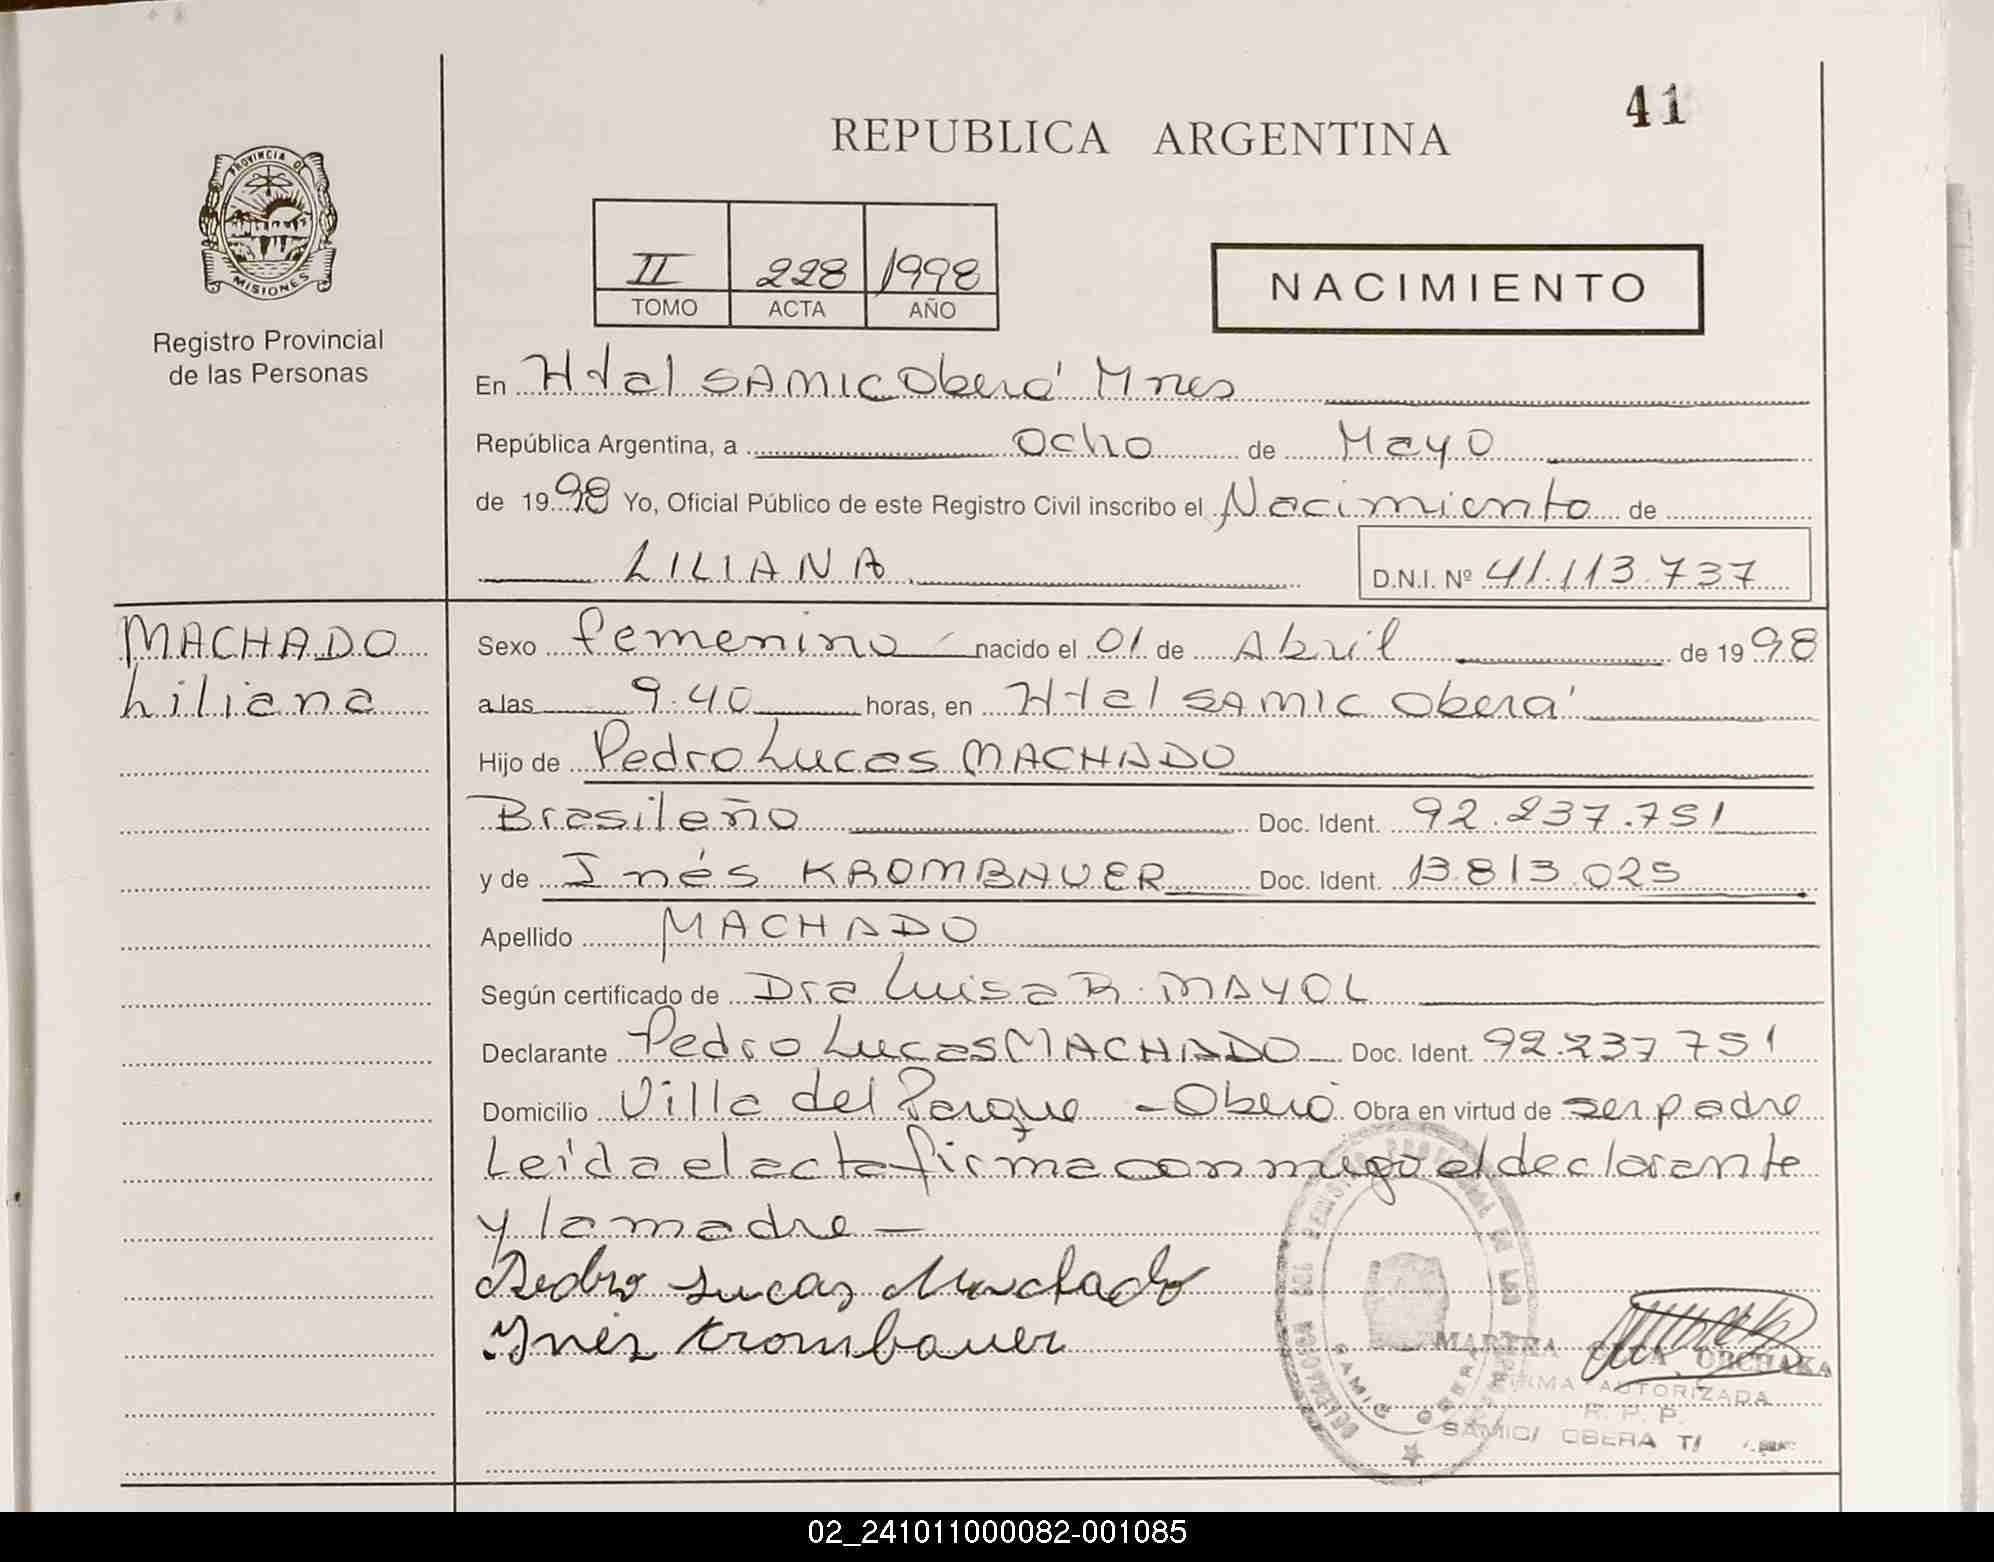 41
REPUBLICA ARGENTINA
PROVINCIA DE
MISIONES
Registro Provincial
de las Personas
II 228 1998
TOMO ACTA AÑO
NACIMIENTO
En Htal SAMIC Oberá Mnes
República Argentina, a ocho de Mayo
de 1998 Yo, Oficial Público de este Registro Civil inscribo el Nacimiento de
LILIANA D.N.I. Nº 41.113.737
MACHADO
Liliana
Sexo femenino nacido el 01 de Abril de 1998
a las 9.40 horas, en Htal SAMIC Oberá
Hijo de Pedro Lucas MACHADO
Brasileño Doc. Ident. 92.237.751
y de Inés KROMBAUER Doc. Ident. 13.813.025
Apellido MACHADO
Según certificado de Dra Luisa R. MAYOL
Declarante Pedro Lucas MACHADO Doc. Ident. 92.237.751
Domicilio Villa del Parque - Oberá Obra en virtud de ser padre
Leída el acta firma conmigo el declarante
y la madre —
Pedro Lucas Machado
Inés Krombauer
SAMIC OBERA
MARTHA ORCHAKA
FIRMA AUTORIZADA
R. P. P.
SAMIC/ OBERA
02_241011000082-001085